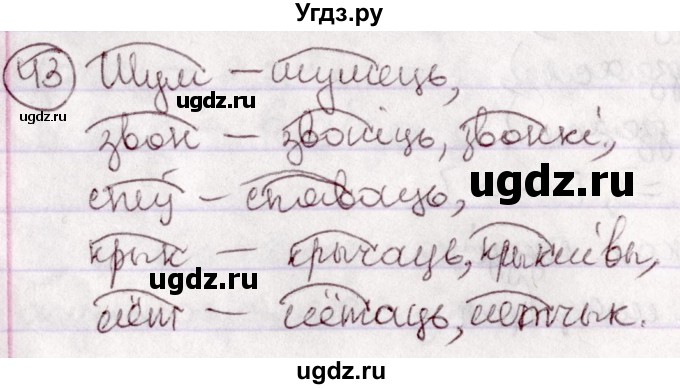 Угдз.ру
43 Шум – шумець,
звон – звоніць, звонкі,
спеў – спяваць,
крык – крычаць, крыклівы,
лёт – лётаць, летчык.
ugdz.ru
ugdz.ru
ugdz.ru
ugdz.ru
ugdz.ru
ugdz.ru